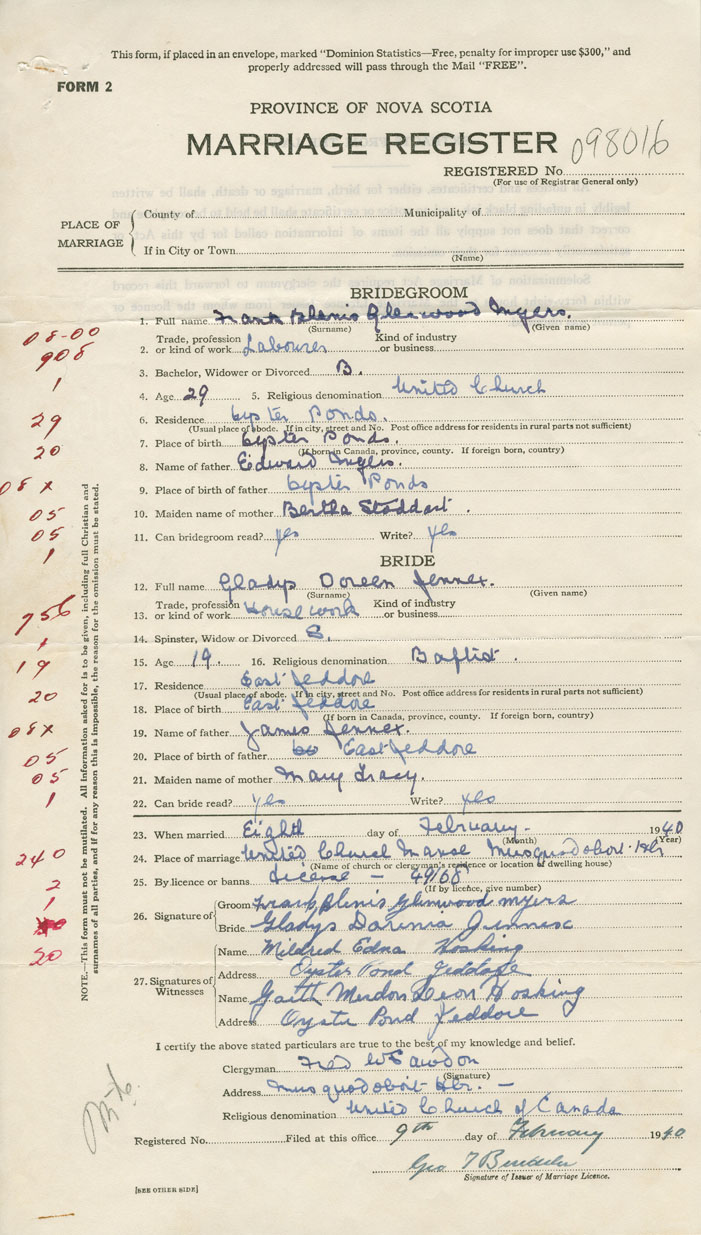 This form, if placed in an envelope, marked "Dominion Statistics—Free, penalty for improper use $300," and
properly addressed will pass through the Mail "FREE".
FORM 2
PROVINCE OF NOVA SCOTIA
MARRIAGE REGISTER 098016
REGISTERED No.
(For use of Registrar General only)
PLACE OF MARRIAGE
County of Municipality of
If in City or Town
(Name)
BRIDEGROOM
1. Full name Frank Blenis Glenwood Myers.
(Surname) (Given name)
Trade, profession Kind of industry
2. or kind of work Labourer or business
3. Bachelor, Widower or Divorced B.
4. Age 29 5. Religious denomination United Church
6. Residence Oyster Ponds.
(Usual place of abode. If in city, street and No. Post office address for residents in rural parts not sufficient)
7. Place of birth Oyster Ponds.
(If born in Canada, province, county. If foreign born, country)
8. Name of father Edward
9. Place of birth of father Oyster Ponds
10. Maiden name of mother Bertha Stoddart.
11. Can bridegroom read? yes Write? yes
BRIDE
12. Full name Gladys Doreen Jennex.
(Surname) (Given name)
Trade, profession Kind of industry
13. or kind of work Housework or business
14. Spinster, Widow or Divorced S.
15. Age 19. 16. Religious denomination Baptist.
17. Residence East Jeddore
(Usual place of abode. If in city, street and No. Post office address for residents in rural parts not sufficient)
18. Place of birth East Jeddore
(If born in Canada, province, county. If foreign born, country)
19. Name of father James Jennex.
20. Place of birth of father East Jeddore
21. Maiden name of mother Mary Tracy.
22. Can bride read? yes Write? yes
23. When married Eighth day of February 1940
(Month) (Year)
24. Place of marriage United Church Manse Musquodoboit Hbr
(Name of church or clergyman's residence or location of dwelling house)
25. By licence or banns License – 49168
(If by licence, give number)
26. Signature of
Groom Frank Blenis Glenwood Myers
Bride Gladys Jennex
27. Signatures of Witnesses
Name Mildred Edna Hosking
Address Oyster Pond Jeddore
Name Garth Leon Hosking
Address Oyster Pond Jeddore
I certify the above stated particulars are true to the best of my knowledge and belief.
Clergyman Fred W Sawdon
(Signature)
Address Musquodoboit Hbr. –
Religious denomination United Church of Canada
Registered No. Filed at this office 9th day of February 1940
Geo T
Signature of Issuer of Marriage Licence.
[SEE OTHER SIDE]
NOTE.—This form must not be mutilated. All information asked for is to be given, including full Christian and
surnames of all parties, and if for any reason this is impossible, the reason for the omission must be stated.
08-00
908
1
29
20
08 x
05
05
1
756
1
19
20
08x
05
05
1
240
2
1
20